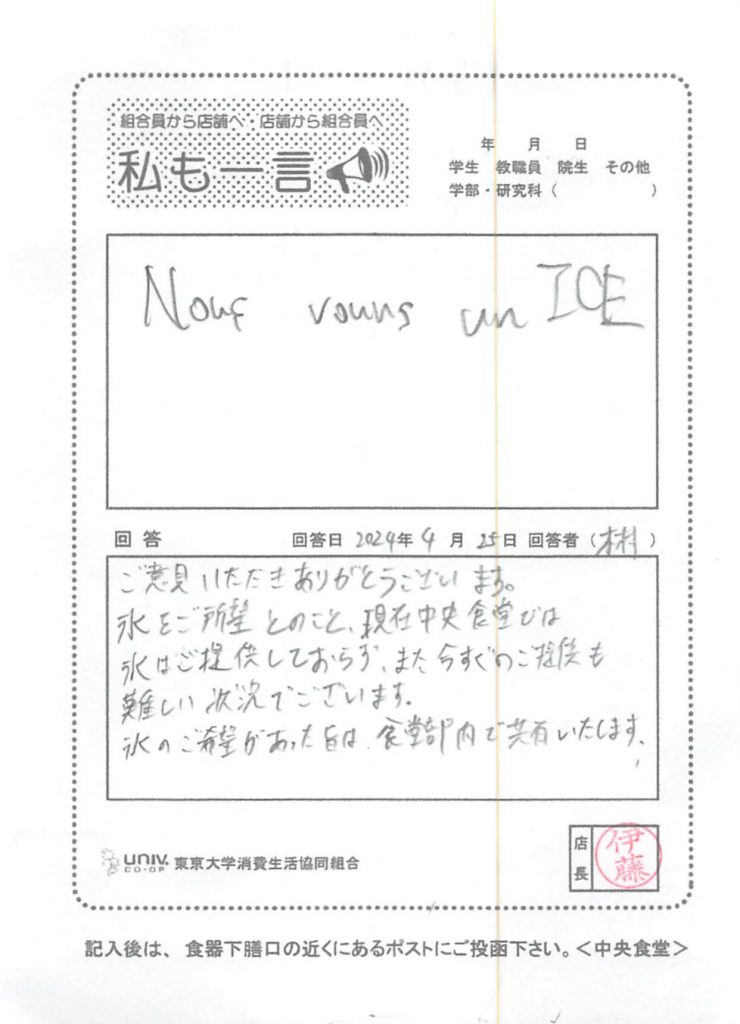 組合員から店舗へ・店舗から組合員へ
私も一言
年 月 日
学生 教職員 院生 その他
学部・研究科（ ）
un ICE
回答 回答日 2024年 4月 25日 回答者（ ）
ご意見いただきありがとうございます。
氷をご所望とのこと、現在中央食堂では
氷はご提供しておらず、また今すぐのご提供も
難しい状況でございます。
氷のご希望があった旨は、食堂部内で共有いたします、
UNIV. CO-OP 東京大学消費生活協同組合
店長 伊藤
記入後は、食器下膳口の近くにあるポストにご投函下さい。＜中央食堂＞